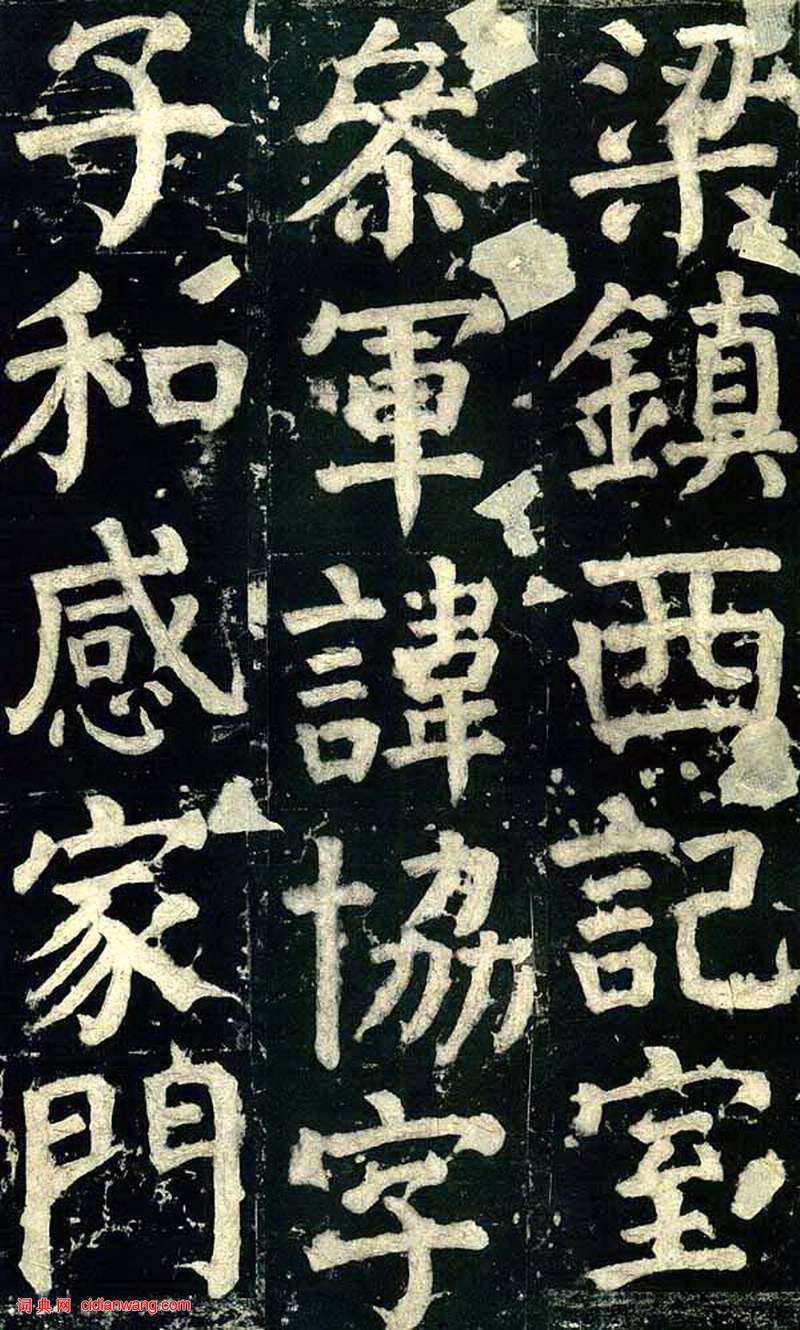 梁鎮西記室
叅軍諱協字
子和感家門
词典网 cidianwang.com